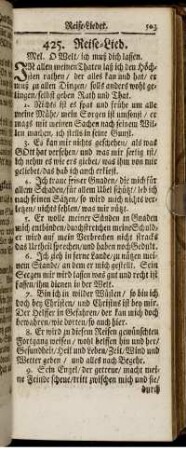 Reise-Lieder. 503
425. Reise-Lied.
Mel. O Welt/ ich muß dich lassen.
IN allen meinen Thaten laß ich den Höch-
sten rathen/ der alles kan und hat/ er
muß zu allen Dingen/ solls anders wohl ge-
lingen/ selbst geben Rath und That.
2. Nichts ist es spat und frühe um alle
meine Mühe/ mein Sorgen ist umsonst/ er
mags mit meinen Sachen nach seinem Wil-
len machen, ich stells in seine Gunst.
3. Es kan mir nichts geschehen/ als was
GOtt hat versehen/ und was mir seelig ist/
ich nehm es wie ers giebet/ was ihm von mir
geliebet/ das hab ich auch erkiest.
4. Ich traue seiner Gnaden/ die mich für
allem Schaden/ für allem Übel schützt/ leb ich
nach seinen Sätzen/ so wird mich nichts ver-
letzen/ nichts fehlen/ was mir nützt.
5. Er wolle meiner Sünden in Gnaden
mich entbinden/ durchstreichen meine Schuld/
er wird auf mein Verbrechen nicht stracks
das Urtheil sprechen/ und haben noch Gedult.
6. Ich zieh in ferne Lande/ zu nützen mei-
nem Stande/ an dem er mich gestellt. Sein
Seegen wir wird lassen was gut und recht ist
fassen/ ihm dienen in der Welt.
7. Bin ich in wilder Wüsten/ so bin ich
doch bey Christen/ und Christus ist bey mir.
Der Helffer in Gefahren/ der kan mich doch
bewahren/ wie dorten/ so auch hier.
8. Er wird zu diesem Reisen gewünschten
Fortgang weisen/ wohl helffen hin und her/
Gesundheit/ Heil und Leben/ Zeit/ Wind und
Wetter geben/ und alles nach Begehr.
9. Sein Engel/ der getreue/ macht mei-
ne Feinde scheue/ tritt zwischen mich und sie/
durch